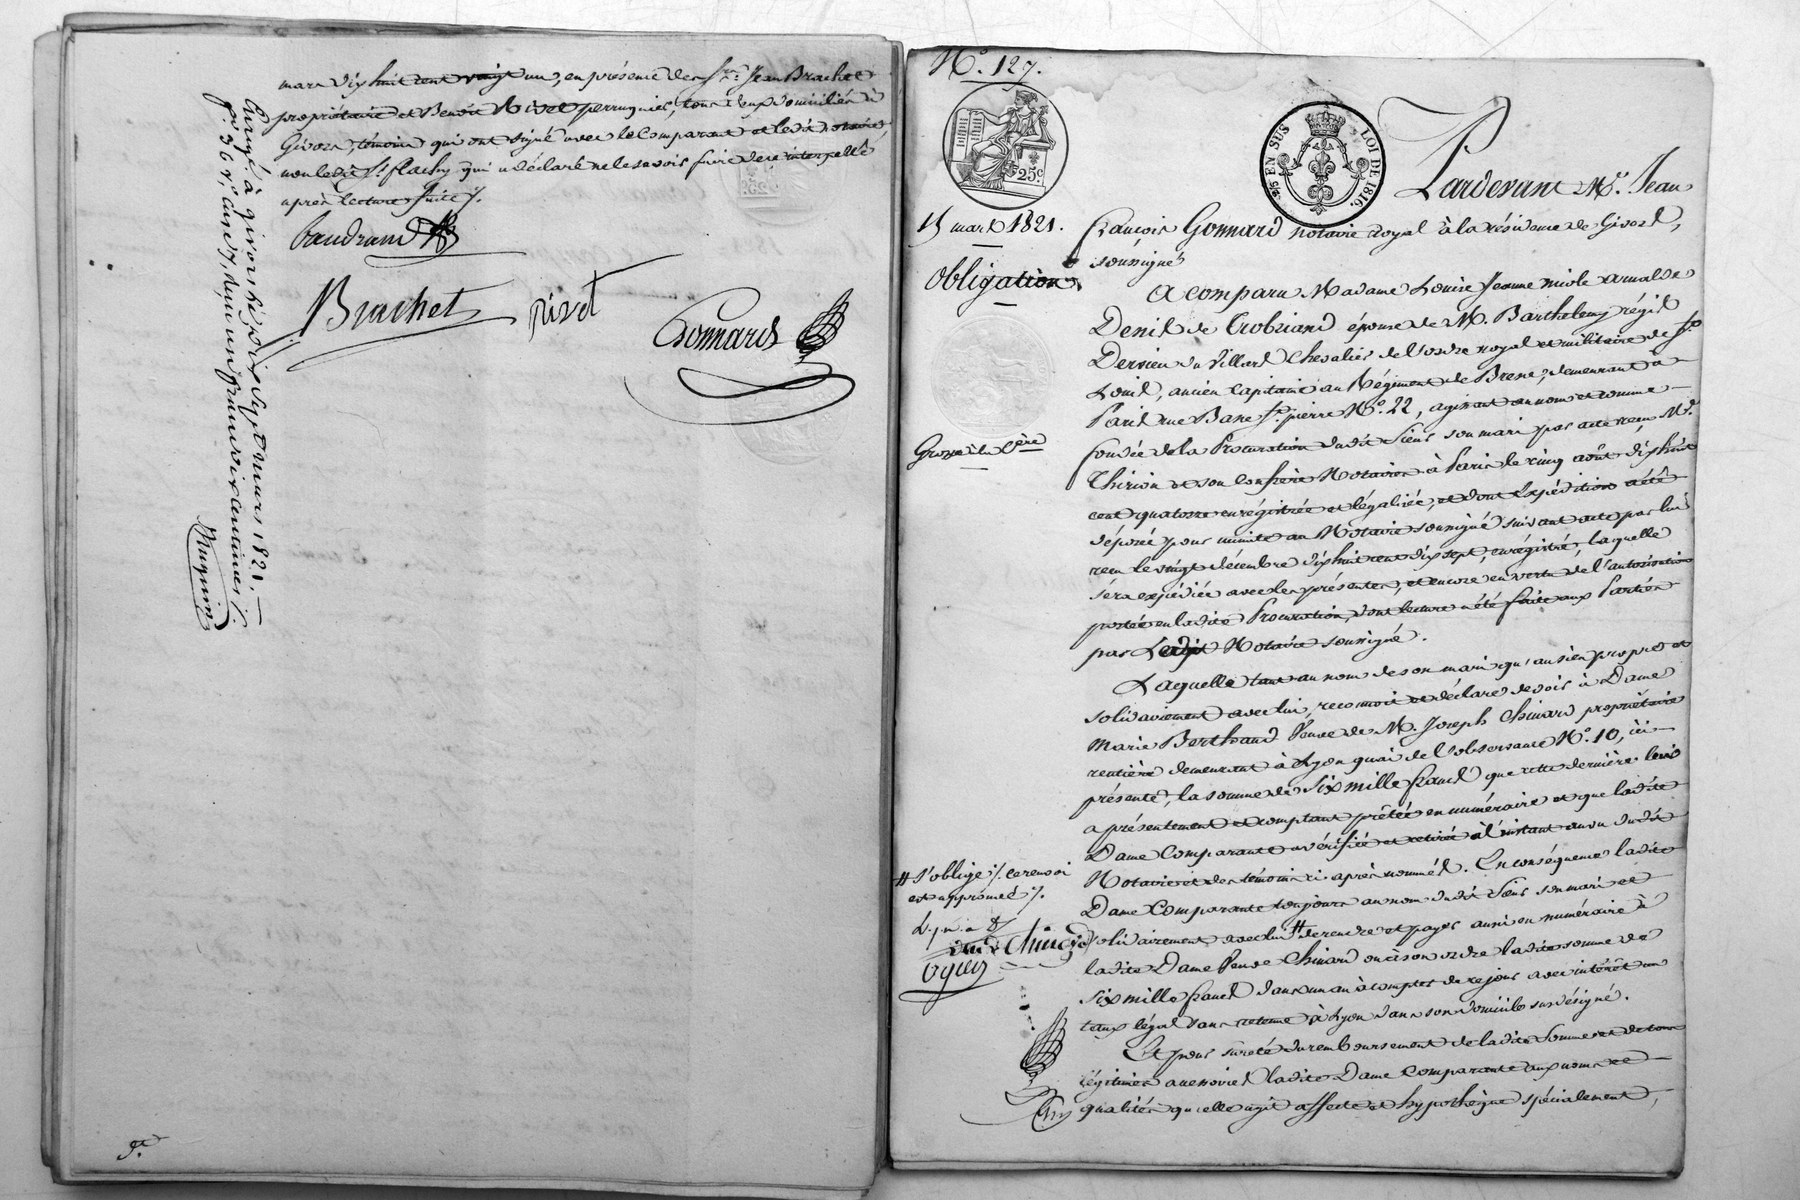 mars dix huit cent vingt un, en présence des Srs. Jean Brachet
propriétaire et Benoit Rivet perruquier, tous deux domiciliés à
Givors, témoins qui ont signé avec le comparant et ledit notaire,
non ledit Sr. flachy qui a déclaré ne le savoir faire de ce interpellé
après lecture faite ./.
Baudrand
Brachet rivet
Gonnard
Enregé. à givors le dix sept mars 1821.
fo. 36 vo. cases 7, reçu un franc dix centimes ./.
9.
No. 127.
25c.
25c. EN SUS LOI DE 1816.
Pardevant Me. Jean
15 mars 1821.
françois Gonnard notaire royal à la résidence de Givors,
soussigné
Obligation
A comparu Madame Louise Jeanne nicole arnalde
Denis de Trobriand épouse de M. Barthelemy régis
Dervieu du Villars Chevalier de l'ordre royal et militaire de St.
Louis, ancien capitaine au Régiment de Bresse, demeurant à
Paris rue Basse St. pierre No. 22, agissant au nom et comme
Grosse à la Cère
fondée de la Procuration dudit Sieur son mari par acte recu Me.
Thirion et son confrère Notaires à Paris le cinq août dix huit
cent quatorze enregistrée et légalisée, et dont Expédition a été
déposée pour minute au Notaire soussigné suivant acte par lui
recu le vingt décembre dix huit cent dix sept, enregistré, laquelle
sera expédiée avec les présentes, et encore en vertu de l'autorisation
portée en ladite Procuration, dont lecture a été faite aux Parties
par Ledit Notaire soussigné.
Laquelle tant au nom de son mari qu'au sien propre et
solidairement avec lui, reconnoit et déclare devoir à Dame
Marie Berthaud Veuve de M. Joseph Chinard propriétaire
rentière demeurant à Lyon quai de l'observance No. 10, ici
présente, la somme de Six mille francs que cette dernière lui
a présentement et comptant prêtée en numéraire et que ladite
Dame Comparante a vérifiée et retirée à l'instant au vu dudit
Notaire et des témoins ci-après nommés. En conséquence ladite
Dame Comparante toujours au nom dudit Sieur son mari et
# s'oblige ./. ce renvoi
est approuvé ./.
solidairement avec lui # de rendre et payer aussi en numéraire à
ladite Dame Veuve Chinard ou à son ordre ladite somme de
Six mille francs dans un an à compter de ce jour avec intérêt au
taux légal sans retenue à Lyon dans son domicile sus désigné.
Et pour sureté du remboursement de ladite Somme et de tous
légitimes accessoires ladite Dame Comparante aux noms et
qualités qu'elle agit affecte et hypothèque spécialement,